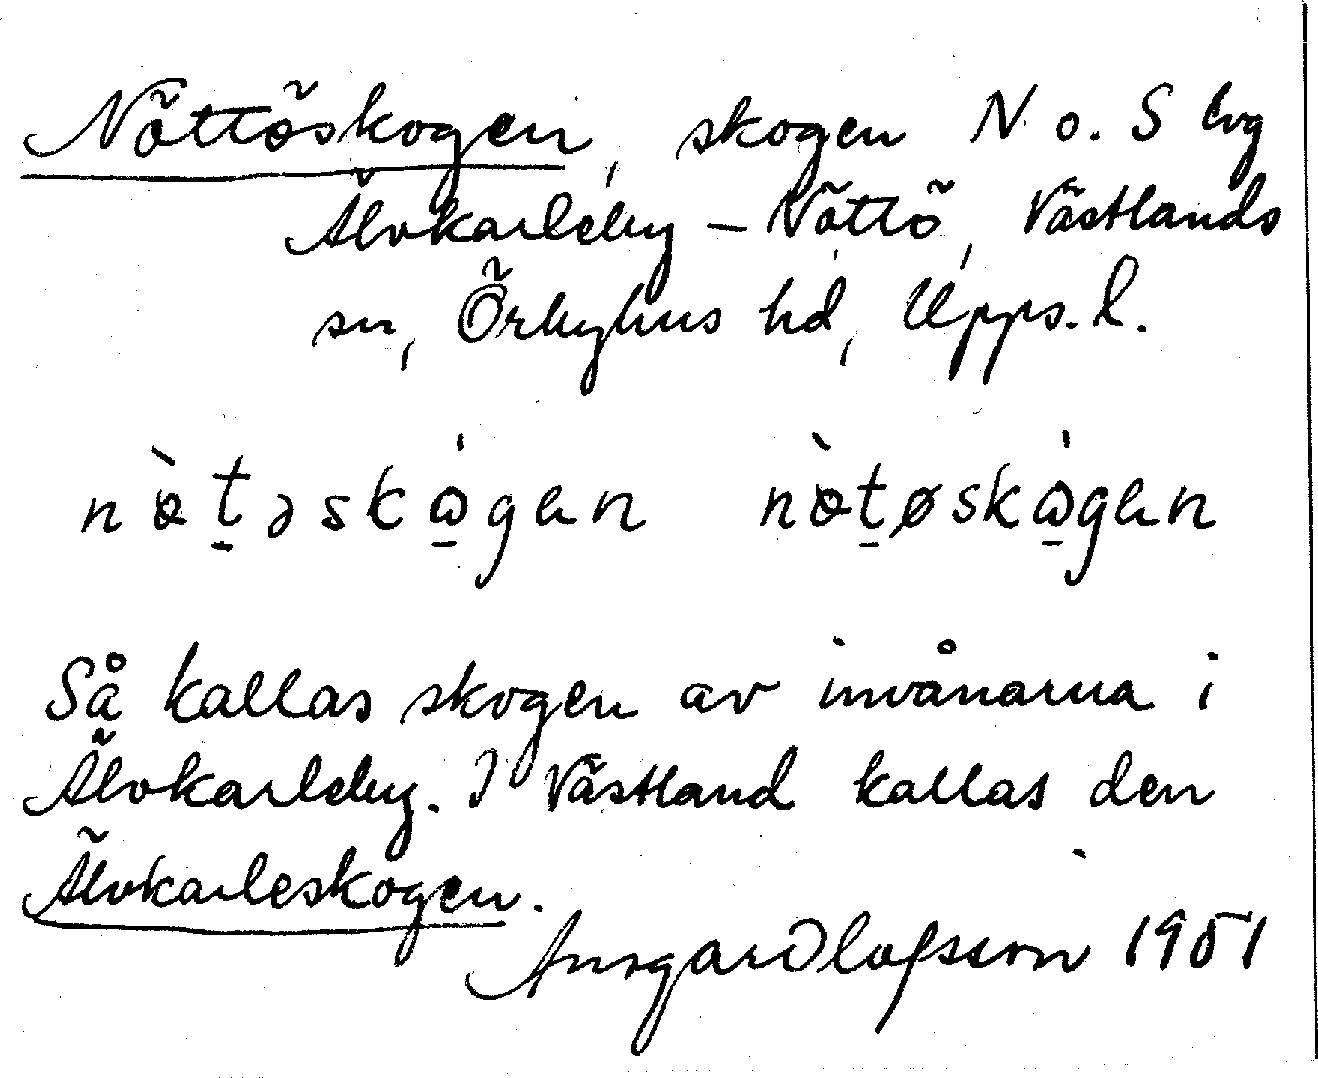 Nöttöskogen, skogen N o. S lvg
Älvkarleby – Nöttö, Västlands
sn, Örbyhus hd, Upps. l.
nò̀t̠əskὼ̠gαn nòt̠øskὼ̠gαn
Så kallas skogen av invånarna i
Älvkarleby. I Västland kallas den
Älvkarleskogen.
Ansgar Olofsson 1951